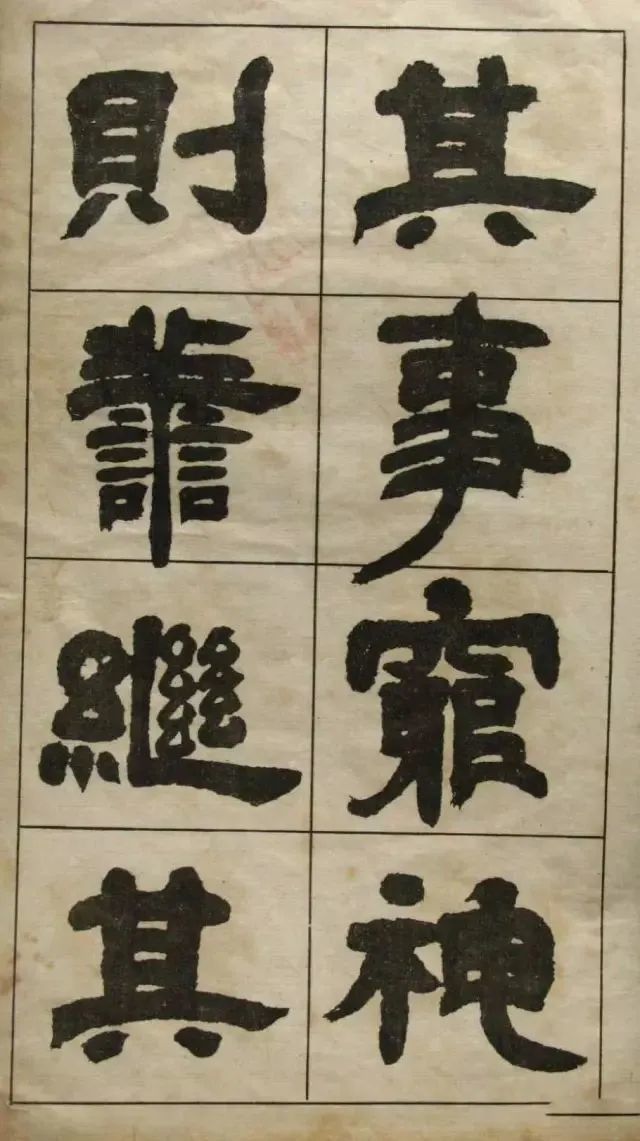 其事竆神
則譱繼其